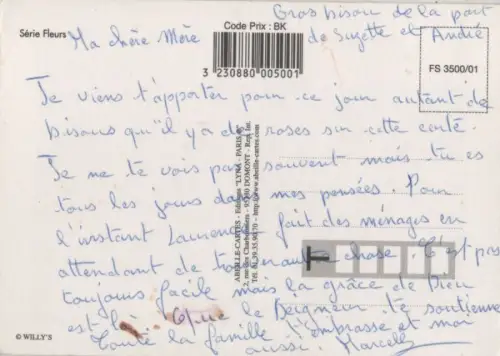 Gros bisou de la part
Série Fleurs
Code Prix : BK
Ma chère Mère
de Suzette et André
3 230880 005001
FS 3500/01
Je viens t'apporter pour ce jour autant de
bisous qu'il y a de roses sur cette carte.
Je ne te vois pas souvent mais tu es
tous les jours dans mes pensées. Pour
l'instant Laurence fait des ménages en
attendant de trouver autre chose. C'est pas
toujours facile mais la grâce de Dieu
est là. Que le Seigneur te soutienne
Toute la famille t'embrasse et moi
aussi. Marcelle
ABEILLE-CARTES - Editions "LYNA - PARIS"
2, rue des Charbonniers - 95330 DOMONT - Rep. Int.
http://www.abeille-cartes.com
© WILLY'S